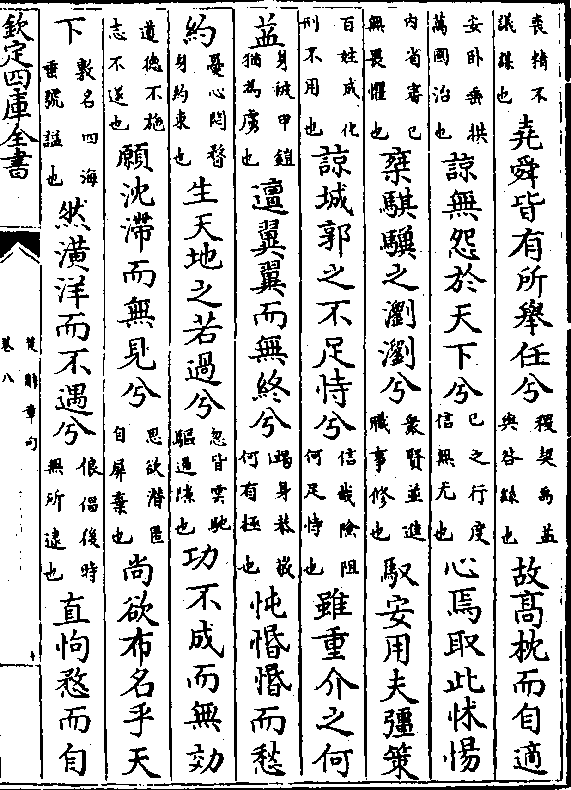 議謀也堯舜皆有所舉任兮稷契禹益與咎繇也故髙枕而自適
安卧垂拱萬國治也諒無怨於天下兮己之行度信無尤也心焉取此怵惕
內省審己無畏懼也椉騏驥之瀏瀏兮衆賢並進職事修也馭安用夫彊策
百姓成化刑不用也諒城郭之不足恃兮信哉險阻何足恃也雖重介之何
益身被甲鎧猶為虜也邅翼翼而無終兮竭身恭敬何有極也忳惛惛而愁
約憂心悶瞀身約束也生天地之若過兮忽皆雲馳驅過隙也功不成而無効
道德不施志不遂也願沈滯而無見兮思欲潛匿自屏棄也尚欲布名乎天
下敷名四海垂號諡也然潢洋而不遇兮俍倡後時無所逮也直怐愗而自
欽定四庫全書
楚辭章句
卷八